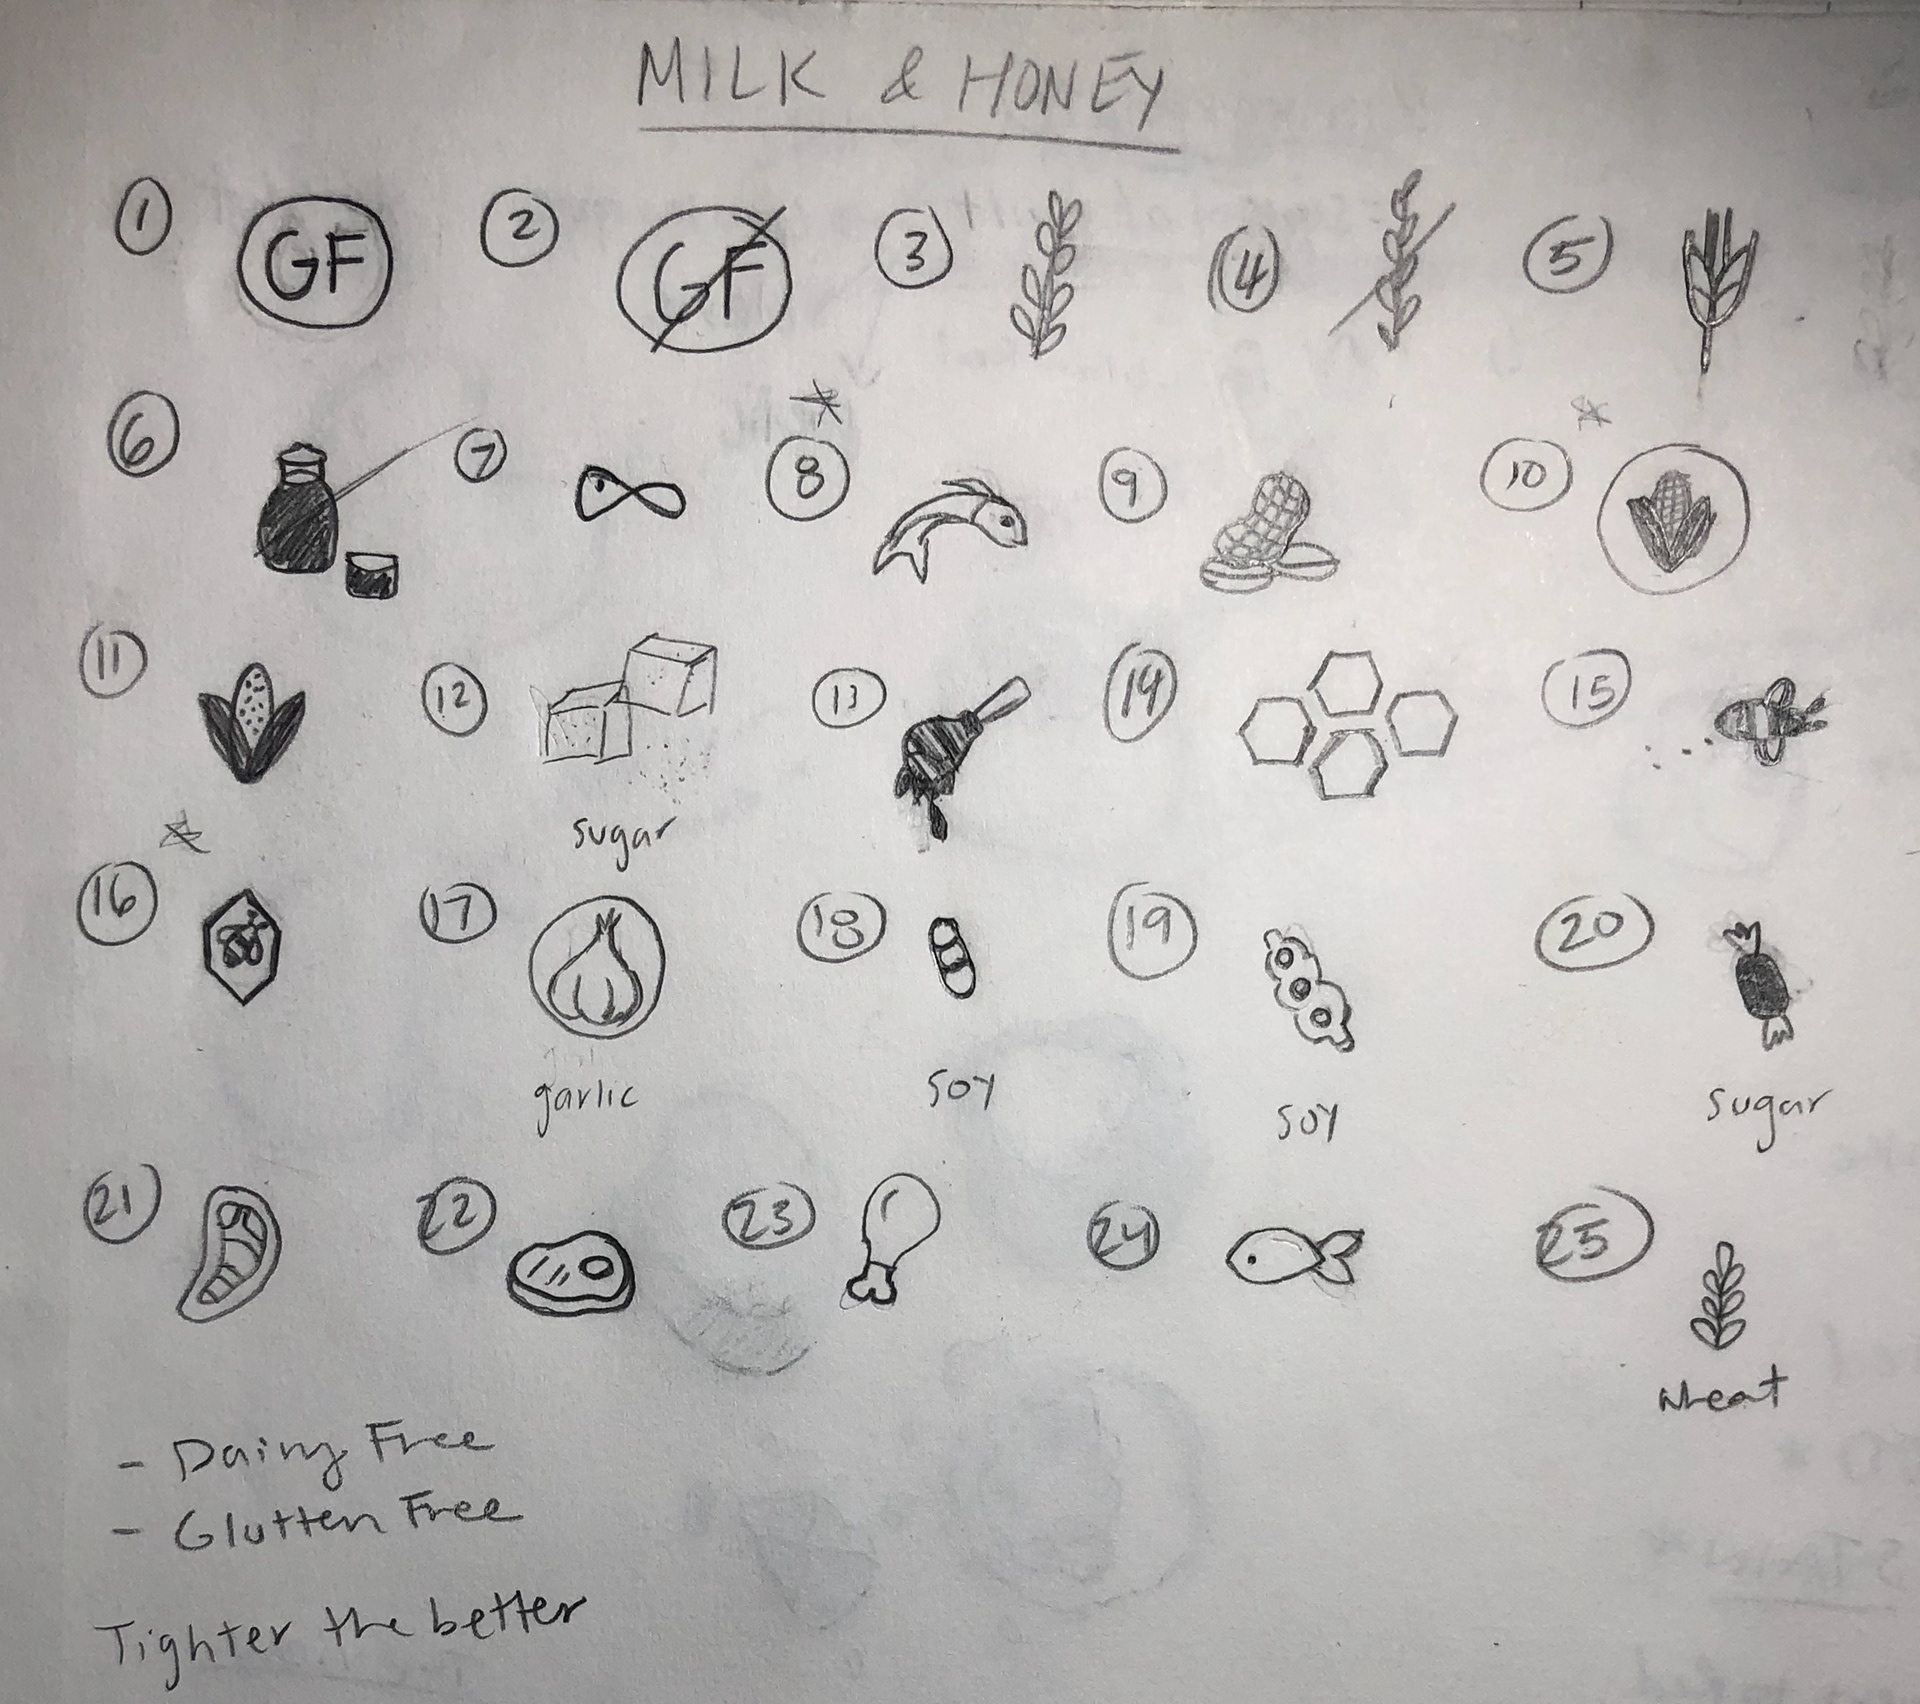 MILK & HONEY
1 GF 2 GF 3 4 5
6 7 8 9 10
11 12 13 14 15
sugar
16 17 18 19 20
garlic soy soy sugar
21 22 23 24 25
wheat
- Dairy Free
- Glutten Free
Tighter the better